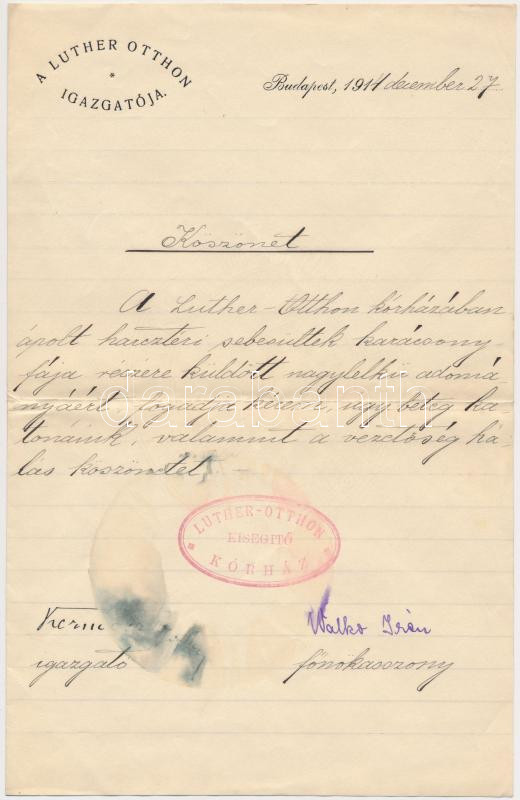 A LUTHER OTTHON
*
IGAZGATÓJA.
Budapest, 1914 deczember 27.
Köszönet
A Luther-Otthon kórházában
ápolt harcztéri sebesültek karácsony-
fája részére küldött nagylelkü adomá-
nyáért fogadja kérem, ugy beteg ka-
tonáink, valamint a vezetőség há-
lás köszönetét. –
LUTHER-OTTHON
KISEGITŐ
KÓRHÁZ
Walko Irén
igazgató
főnökasszony
darabanth